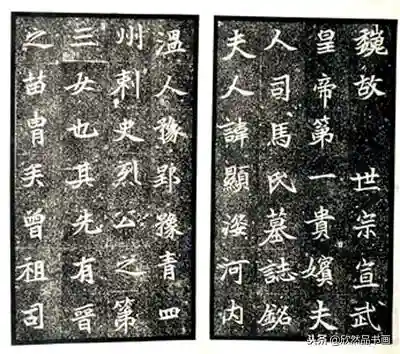 魏故 世宗宣武
皇帝第一貴嬪夫
人司馬氏墓誌銘
夫人諱顯姿河内
溫人豫郢豫青四
州刺史烈公之第
三女也其先有晉
之苗胄矣曾祖司
头条 @欣然品书画